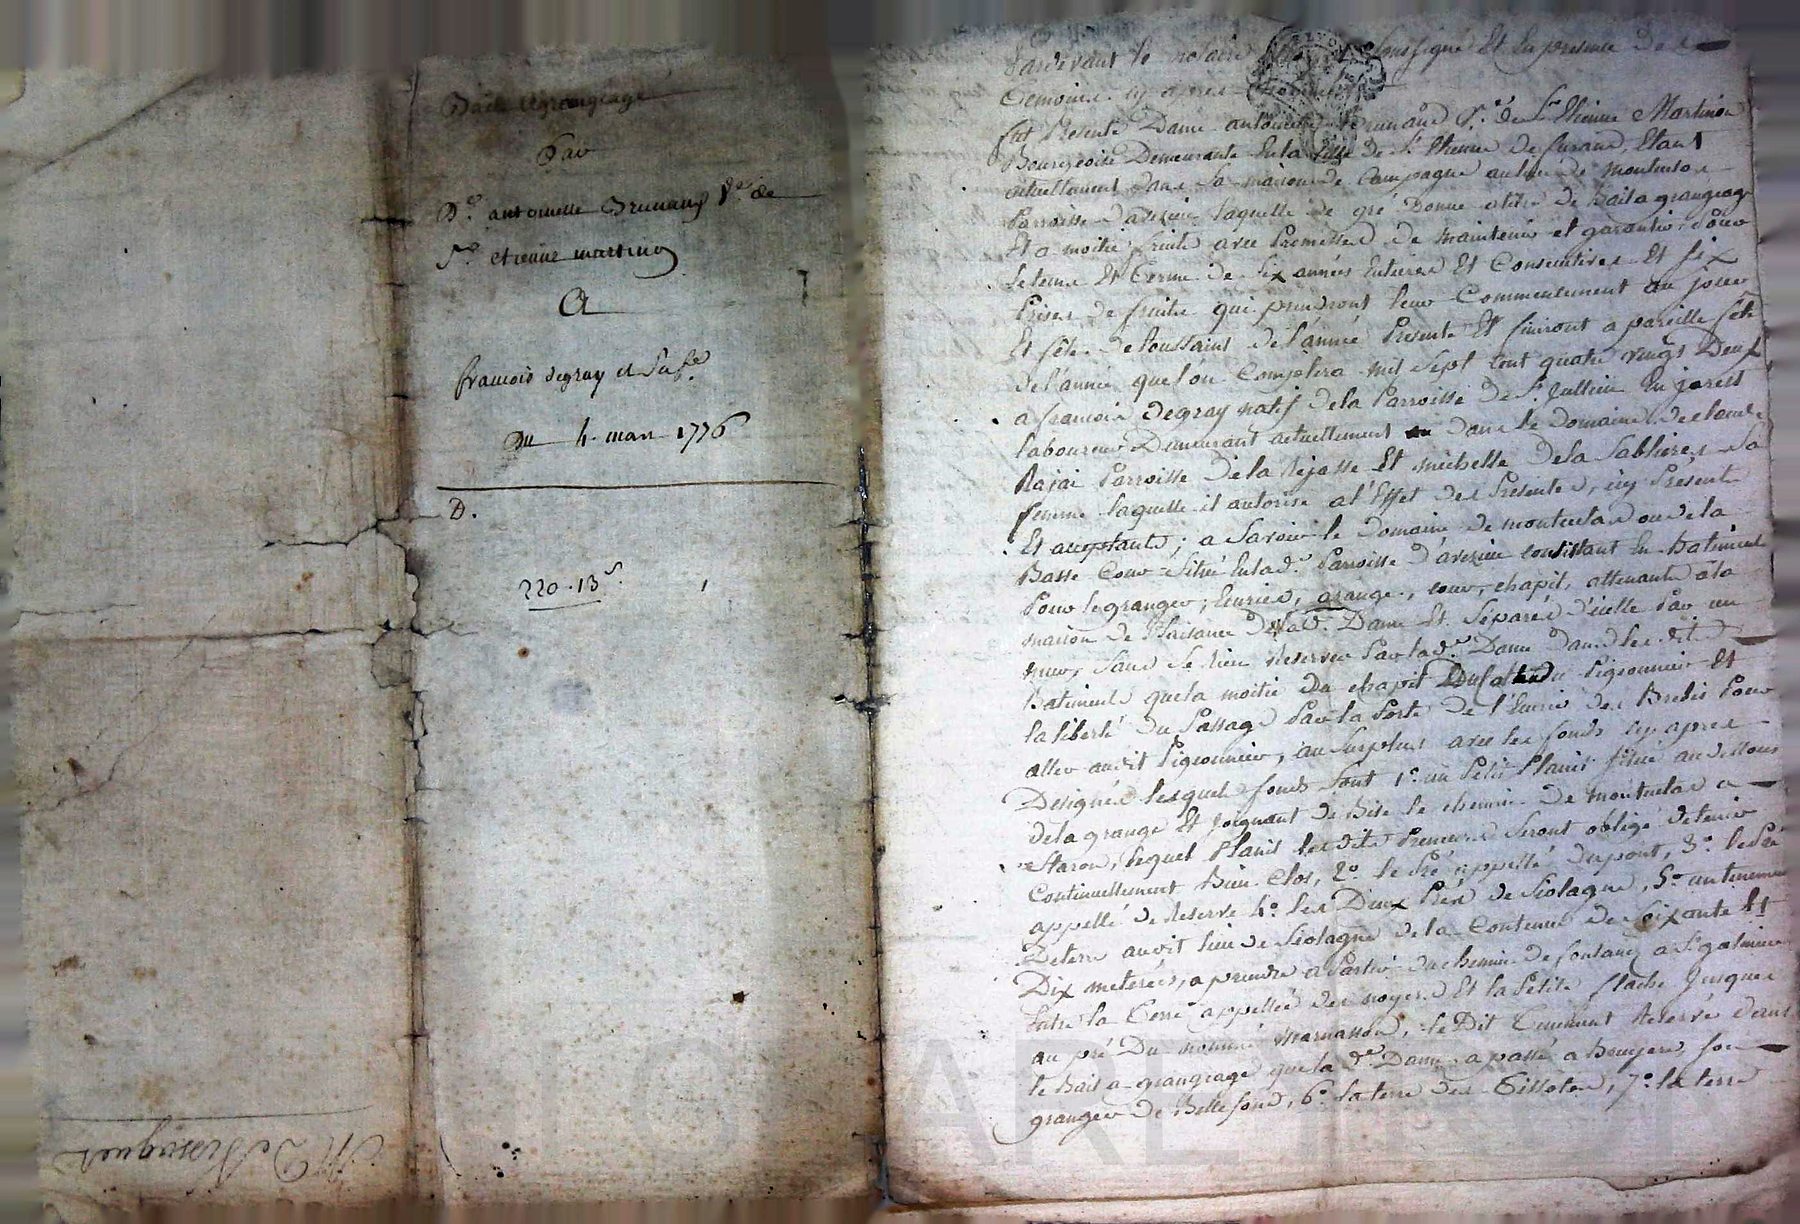 Bail a grangeage
Par
De. antoinette Brunand Ve. de
Sr. etienne martinon
A
francois degray et Sa fe.
Du 4. mars 1776
D.
220. 13 s.
Pardevant le notaire soussigné Et En presence des
temoins cy apres
fut Presente Dame antoinette Brunand Ve. de Sr. Etienne Martinon
Bourgeoise Demeurante En la ville de St. Etienne de furand, Etant
actuellement dans Sa maison de Campagne au lieu de montuclas
Parroisse d'aveizieu laquelle de gré Donne a titre de Bail a grangeage
Et a moitié fruits avec Promesses de maintenir et garantir, Pour
le tems Et terme de Six années Entieres Et Consecutives Et Six
Prises de fruits qui prendront leur Commencement au jour
Et fête de toussaint de l'année Presente Et finiront a pareille fête
de l'année que l'on Comptera mil Sept Cent quatre vingt Deux
a francois Degray natif de la Parroisse de St. Jullien En jarest
laboureur Demeurant actuellement dans le Domaine de
Parroisse de la Rejasse Et michelle de la Sabliere Sa
femme laquelle il autorise a l'Effet des Presentes, icy Présents
Et acceptants; a Savoir le Domaine de montuclas ou de la
Basse Cour Situé En lad. Parroisse d'aveizieu Consistant En Batiment
Pour le granger, Ecuries, grange, cour, chapit, attenants a la
maison de Plaisance de lad. Dame Et Separés d'icelle Par un
mur, Sans Se Rien Reserver Par lad. Dame dans les dits
Batiments que la moitié Du chapit du Pigeonnier Et
la liberté Du Passage Par la Porte de l'Ecurie des Brebis Pour
aller audit Pigeonnier, au Surplus avec les fonds Cy apres
Designés lesquels fonds Sont 1°. un Petit Planis Situé au dessous
de la grange Et joignant de Bise le chemin de montuclas a
lequel Planis lesdits Preneurs Seront obligé de tenir
Continuellement Bien Clos, 2°. le Pré appellé du pont, 3°. le Pré
appellé de Reserve 4°. les Deux Prés de Siolagne, 5°. un tenement
De terre audit lieu de Siolagne de la Contenue de Soixante Et
Dix meterées, a prendre a Partir du chemin de fontanes a St. galmier
Entre la terre appellée des noyers Et la Petite flache jusques
au pré Du nommé le Dit tenement Reservé dans
le Bail a grangeage que la de. Dame a passé a Son
granger de Bellefond, 6°. la terre des 7°. la terre